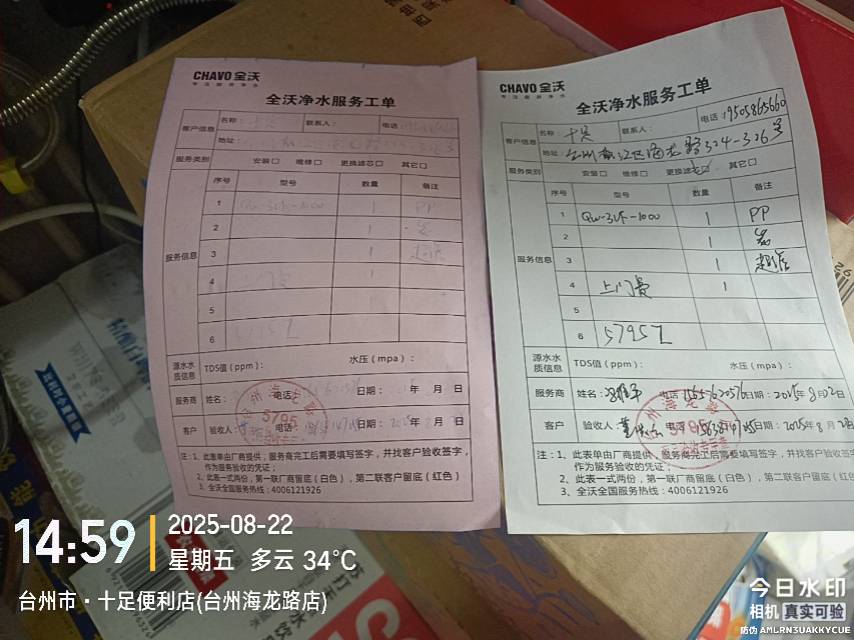 CHAVO 全沃
专注 商用 净水
全沃净水服务工单
客户信息
名称：
联系人：
电话
地址：
服务类别
安装□ 维修□ 更换滤芯□ 其它□
服务信息
序号 型号 数量 备注
1 QW-3UF-1000 1 PP
2 1
3 1
4 上门费 1
5
6 5795元
源水水质信息
TDS值（ppm）：
水压（mpa）：
服务商 姓名： 电话： 日期： 年 月 日
客户 验收人： 电话： 日期： 年 月 日
5795
注：1、此表单由厂商提供，服务商完工后需要填写签字，并找客户验收签字，
作为服务的凭证；
2、此表一式两份，第一联厂商留底（白色），第二联客户留底（红色）
3、全沃全国服务热线：4006121926
CHAVO 全沃
专注 商用 净水
全沃净水服务工单
客户信息
名称： 十足
联系人：
电话：19505865660
地址：台州 江区海龙路324-326号
服务类别
安装□ 维修□ 更换滤芯□ 其它□
服务信息
序号 型号 数量 备注
1 QW-3UF-1000 1 PP
2 1
3 1
4 上门费 1
5
6 5795元
源水水质信息
TDS值（ppm）：
水压（mpa）：
服务商 姓名： 电话 日期：2025年8月22日
客户 验收人： 电话 日期：2025年8月22日
台州海龙路
5795
注：1、此表单由厂商提供，服务商完工后需要填写签字，并找客户验收签字，
作为服务验收的凭证；
2、此表一式两份，第一联厂商留底（白色），第二联客户留底（红色）
3、全沃全国服务热线：4006121926
14:59
2025-08-22
星期五 多云 34℃
台州市·十足便利店(台州海龙路店)
今日水印
相机 真实可验
防伪 AMLRN3UAKKYCUE